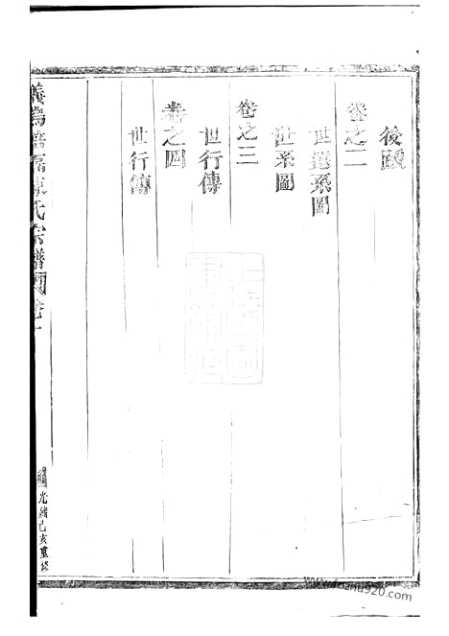 後跋
卷之二
世遷系圖
世系圖
卷之三
世行傳
卷之四
世行傳
氏宗譜
光緒己亥重修
www.jiapu920.com